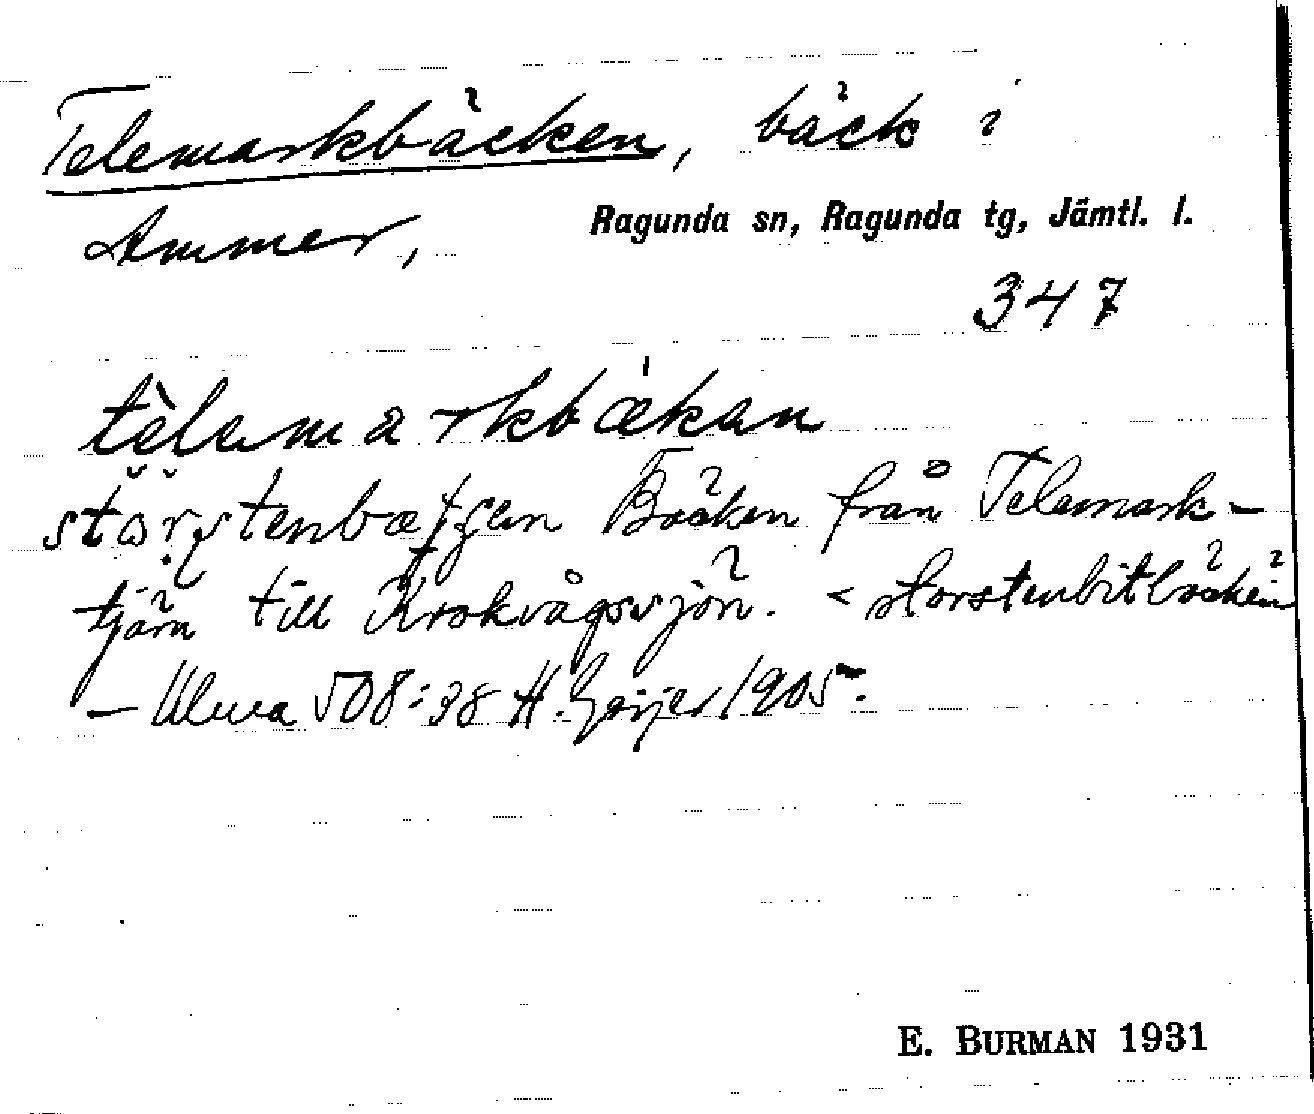 Telemarkbäcken, bäck i
Ammer,
Ragunda sn, Ragunda tg, Jämtl. l.
347
tèlamarkbækan
Bäcken från Telemark-
tjärn till Krokvågssjön. < storstenbitbäcken
– Ulma 508:38 H. Geijer 1905.
E. BURMAN 1931